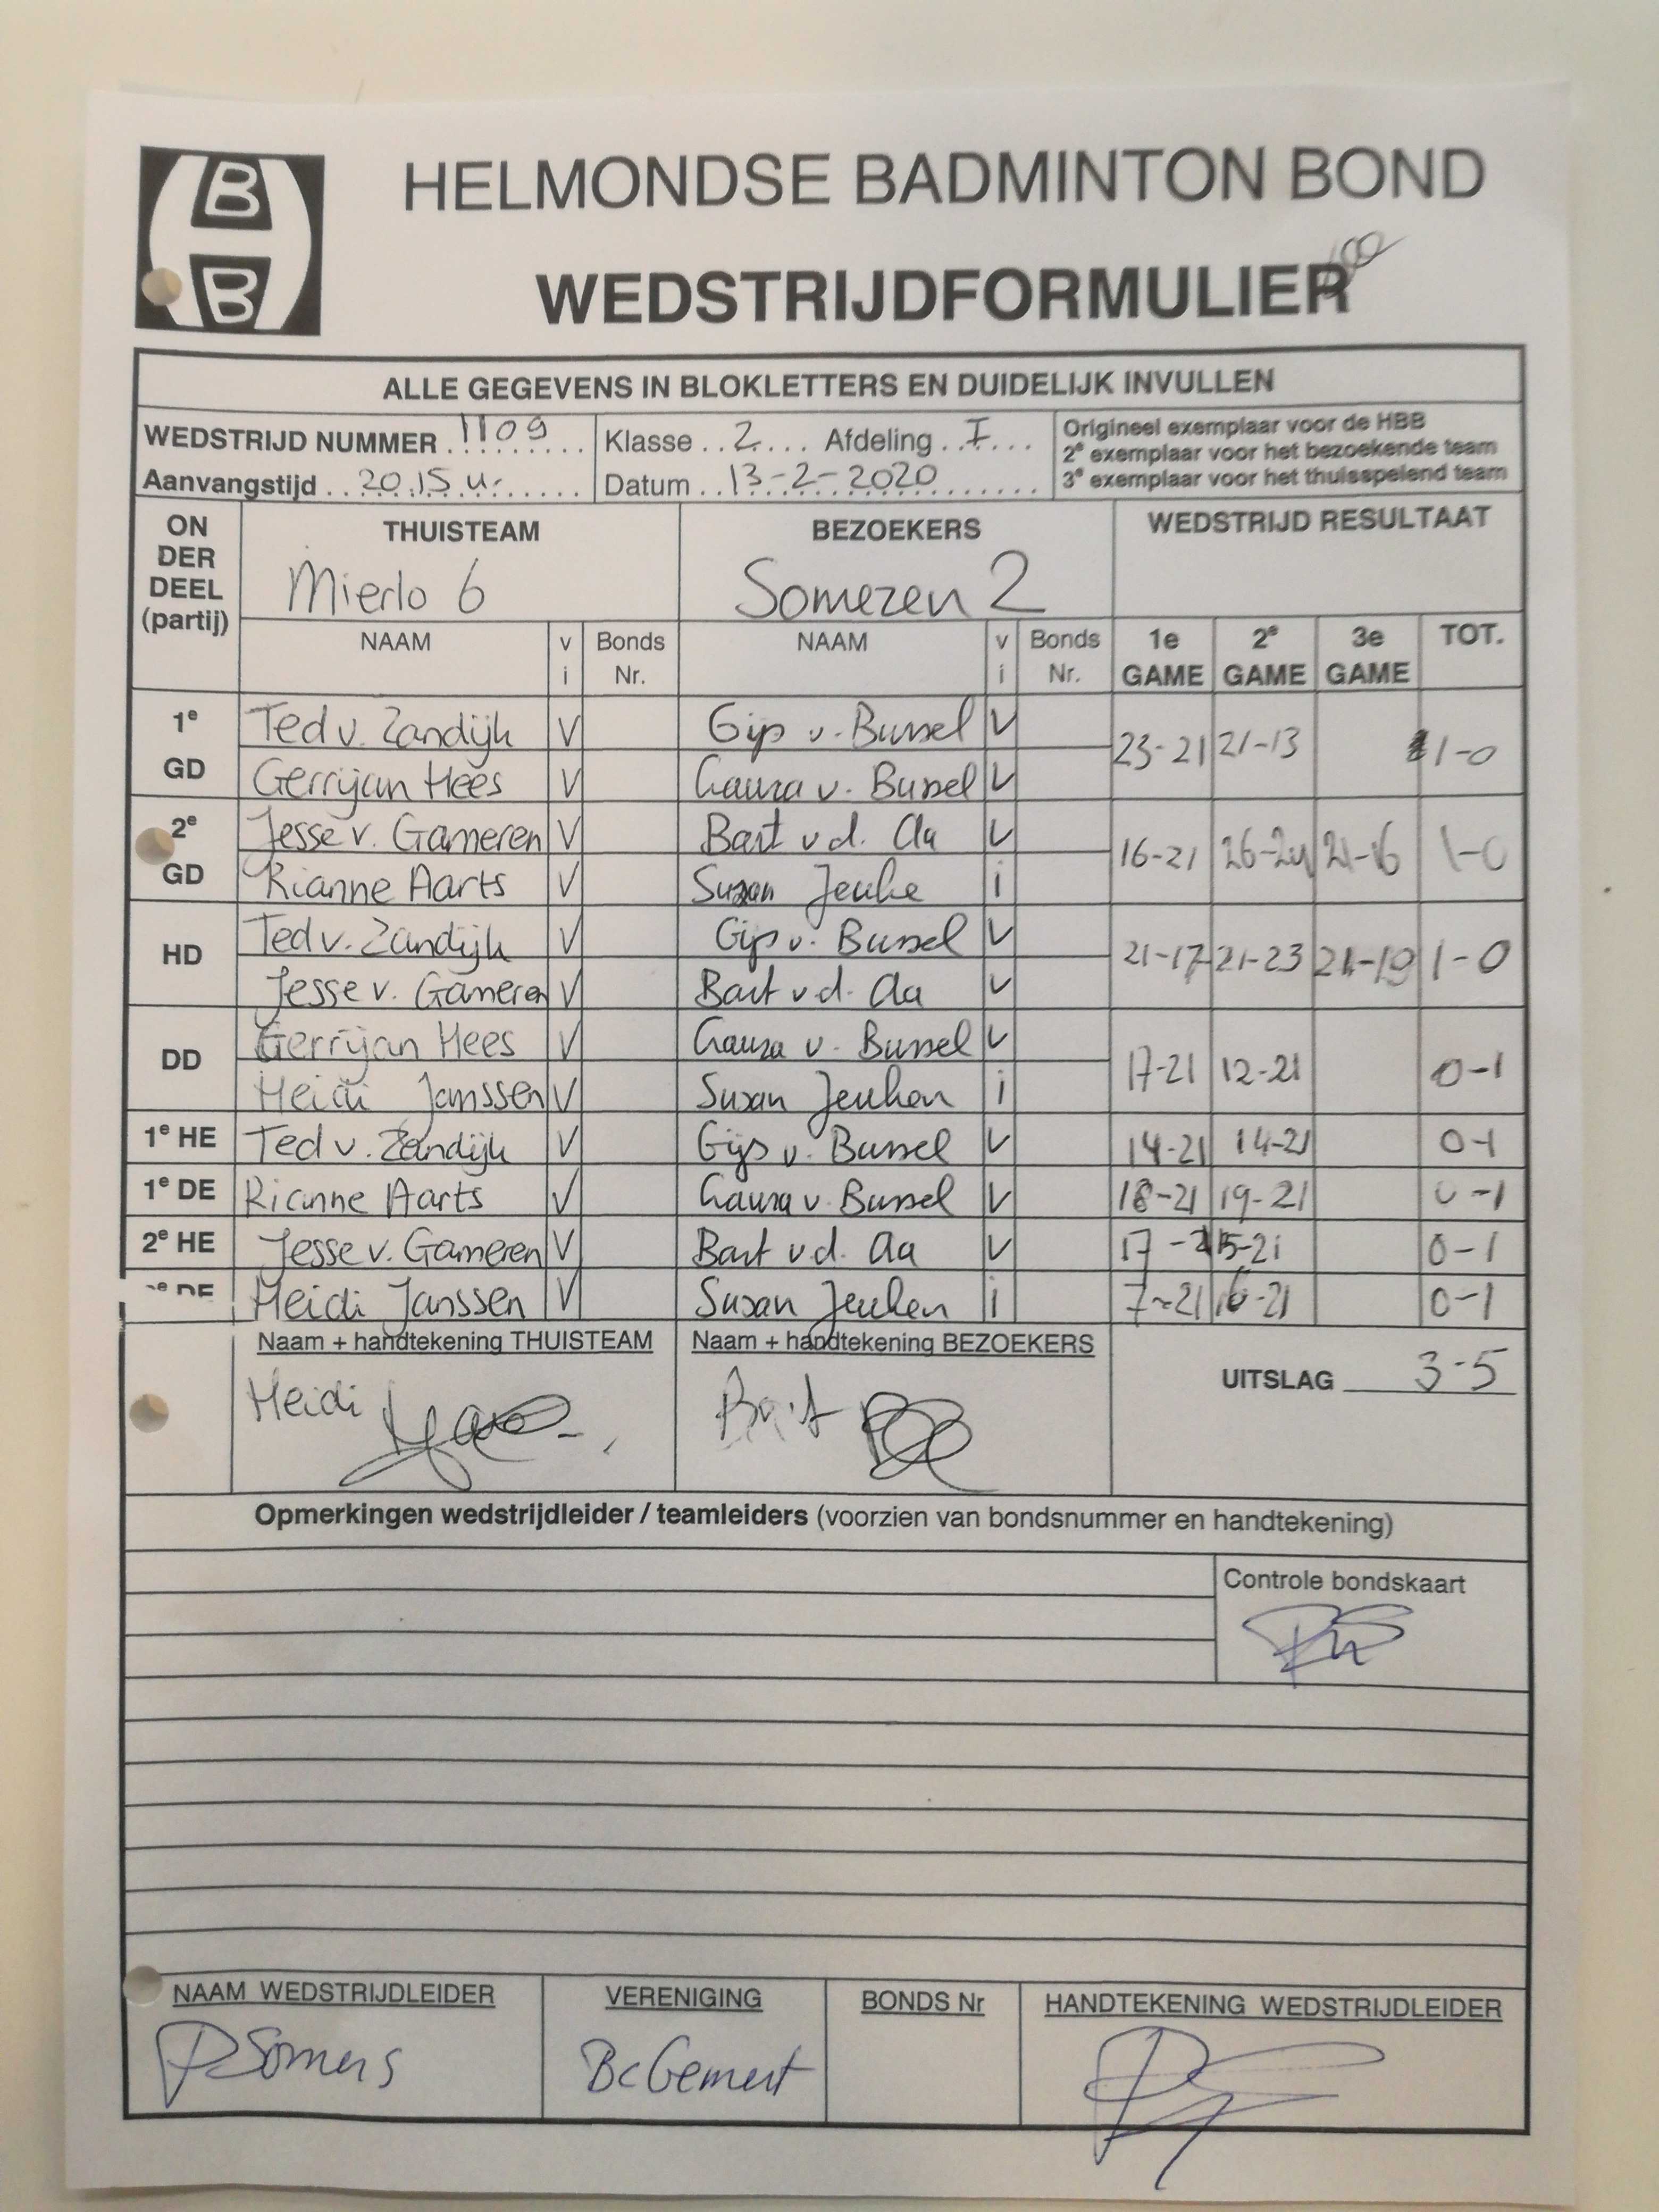 B
B
HELMONDSE BADMINTON BOND
WEDSTRIJDFORMULIER
ALLE GEGEVENS IN BLOKLETTERS EN DUIDELIJK INVULLEN
WEDSTRIJD NUMMER 1109 Klasse 2 Afdeling I
Aanvangstijd 20.15 u. Datum 13-2-2020
Origineel exemplaar voor de HBB
2e exemplaar voor het bezoekende team
3e exemplaar voor het thuisspelend team
ON
DER
DEEL
(partij)
THUISTEAM BEZOEKERS WEDSTRIJD RESULTAAT
Mierlo 6 Someren 2
NAAM v i Bonds Nr. NAAM v i Bonds Nr. 1e GAME 2e GAME 3e GAME TOT.
1e GD Ted v. Zandijk V Gijs v. Bussel V 23-21 21-13 1-0
Gerrijan Hees V Laura v. Bussel V
2e GD Jesse v. Gameren V Bart v d. Aa V 16-21 26-24 21-16 1-0
Rianne Aarts V Susan i
HD Ted v. Zandijk V Gijs v. Bussel V 21-17 21-23 21-19 1-0
Jesse v. Gameren V Bart v d. Aa V
DD Gerrijan Hees V Laura v. Bussel V 17-21 12-21 0-1
Heidi Janssen V Susan Jeuken i
1e HE Ted v. Zandijk V Gijs v. Bussel V 14-21 14-21 0-1
1e DE Rianne Aarts V Laura v. Bussel V 18-21 19-21 0-1
2e HE Jesse v. Gameren V Bart v d. Aa V 17-21 15-21 0-1
DE Heidi Janssen V Susan Jeuken i 7-21 16-21 0-1
Naam + handtekening THUISTEAM Naam + handtekening BEZOEKERS
UITSLAG 3-5
Heidi Bart
Opmerkingen wedstrijdleider / teamleiders (voorzien van bondsnummer en handtekening)
Controle bondskaart
NAAM WEDSTRIJDLEIDER VERENIGING BONDS Nr HANDTEKENING WEDSTRIJDLEIDER
P Somers Bc Gemert